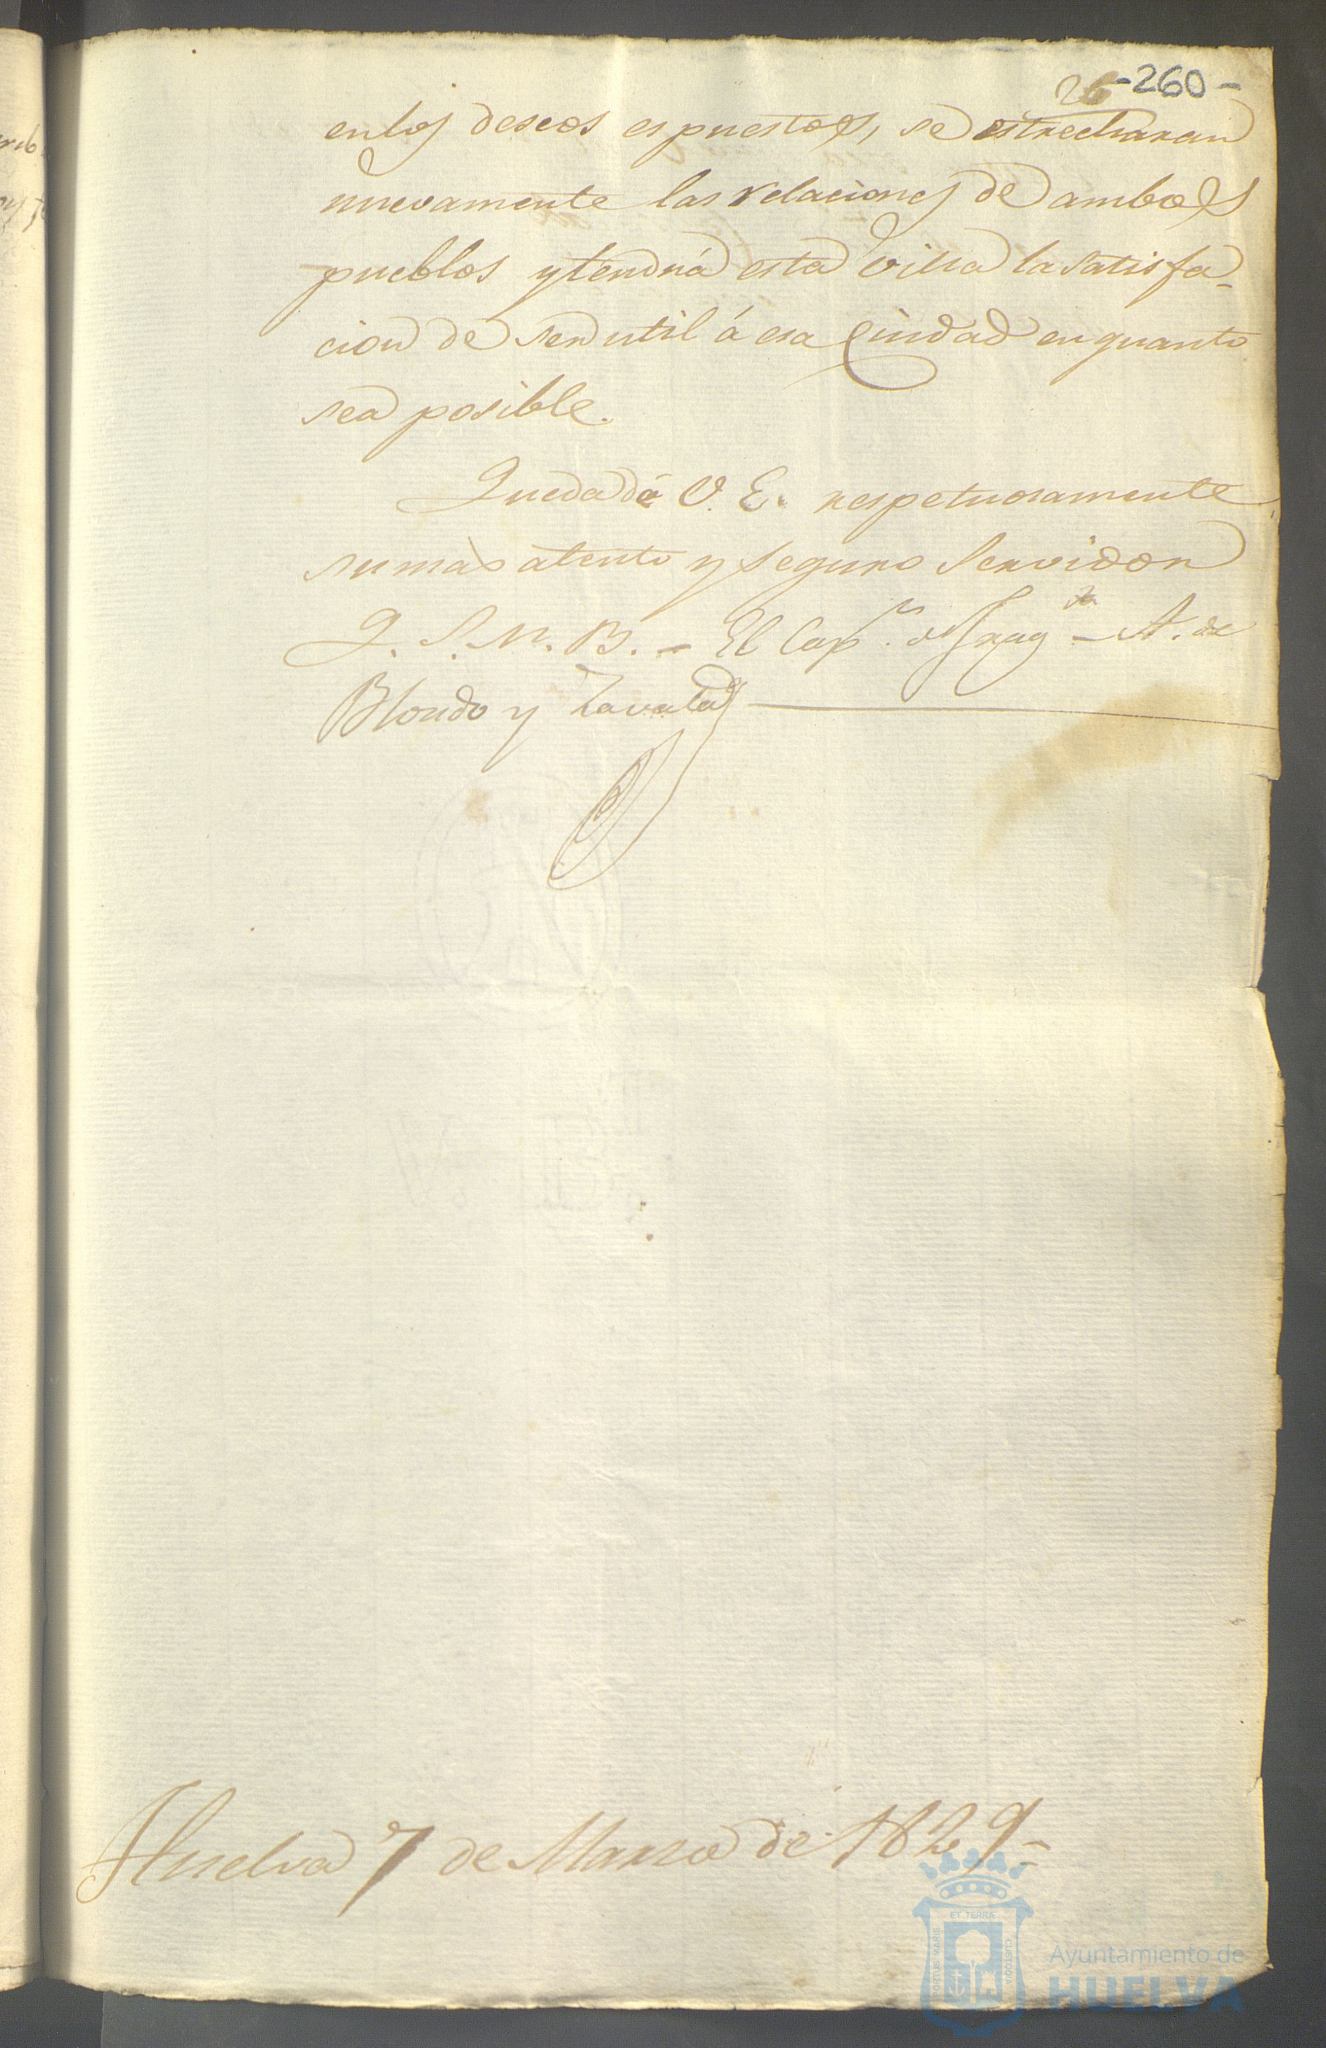 -260-
en los deseos espuestos, se estrecharan
nuevamente las relaciones de ambos
pueblos y tendrá esta villa la satisfa-
cion de ser util á esa Ciudad en quanto
sea posible.
Queda de V. E. respetuosamente
su mas atento y seguro Servidor
Q. S. M. B. - El Cap.n de Frag.ta - A. de
Blondo y Zavala
Huelva 7 de Marzo de 1829-
PORTUS MARIS
ET TERRÆ
CUSTODIA
Ayuntamiento de
HUELVA